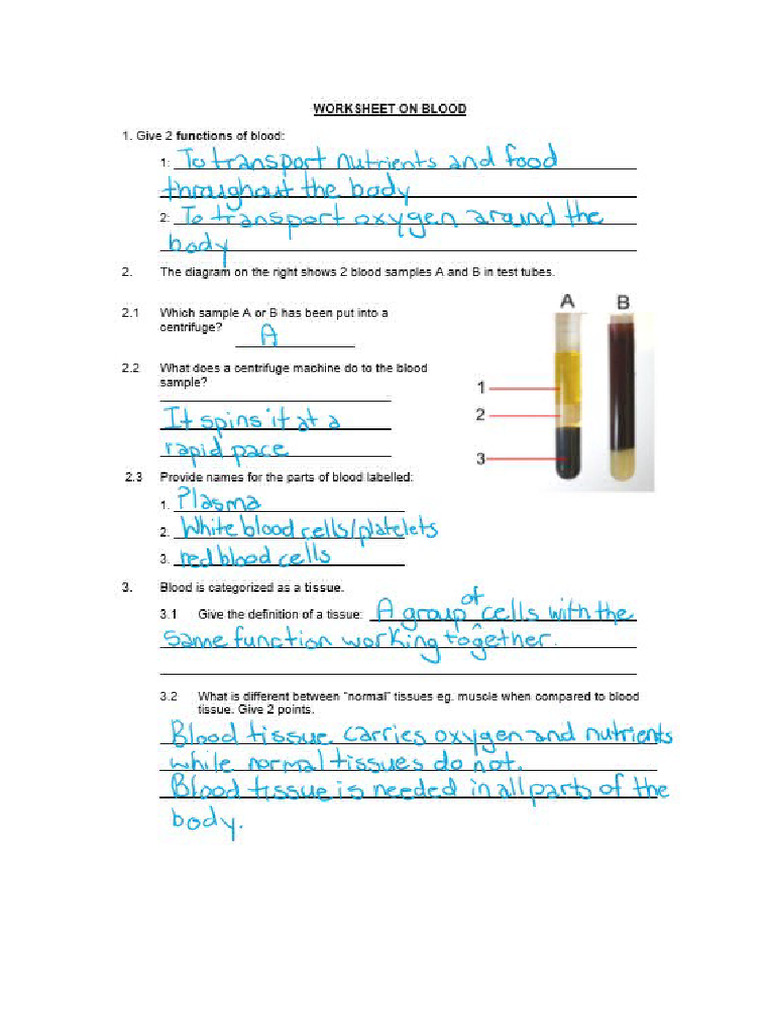 WORKSHEET ON BLOOD
1. Give 2 functions of blood:
1: To transport nutrients and food
throughout the body
2: To transport oxygen around the
body
2. The diagram on the right shows 2 blood samples A and B in test tubes.
2.1 Which sample A or B has been put into a
centrifuge? A
2.2 What does a centrifuge machine do to the blood
sample?
It spins it at a
rapid pace
A B
1
2
3
2.3 Provide names for the parts of blood labelled:
1. Plasma
2. White blood cells/platelets
3. red blood cells
3. Blood is categorized as a tissue.
3.1 Give the definition of a tissue: A group of cells with the
same function working together.
3.2 What is different between "normal" tissues eg. muscle when compared to blood
tissue. Give 2 points.
Blood tissue carries oxygen and nutrients
while normal tissues do not.
Blood tissue is needed in all parts of the
body.